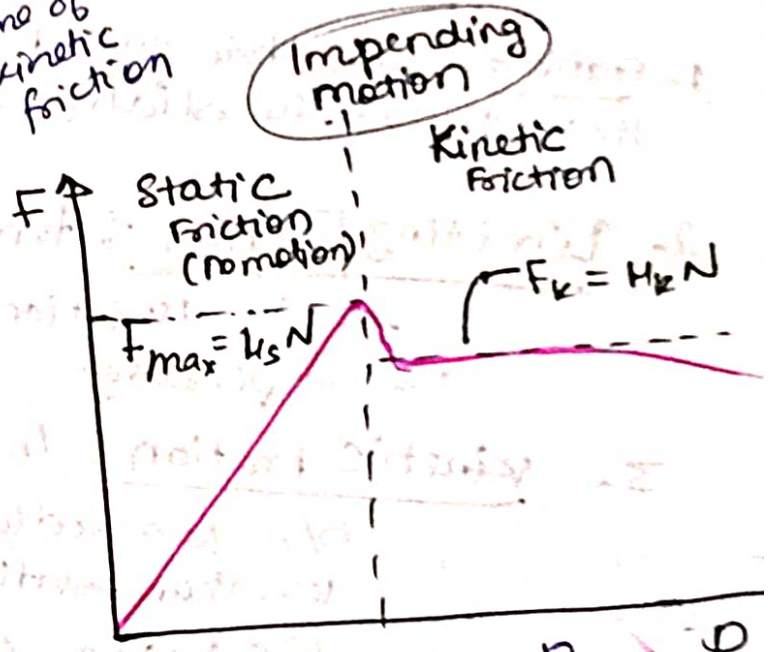 kinetic
friction
Impending
motion
Kinetic
Friction
F
Static
Friction
(no motion)
Fmax = μsN
Fk = μkN